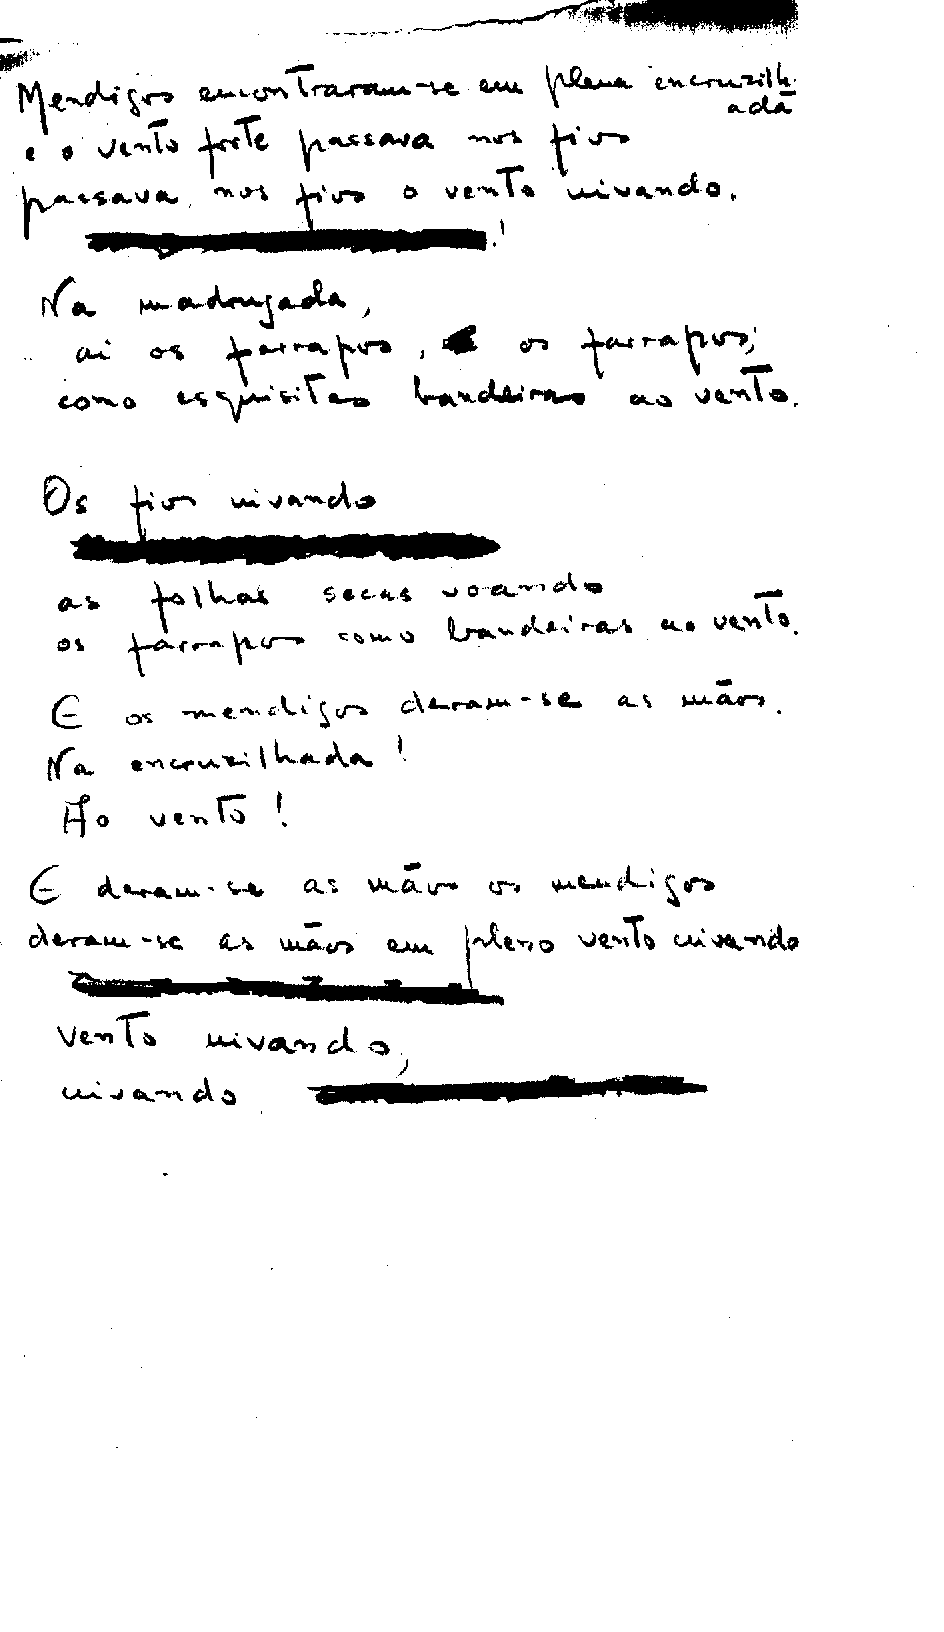 Mendigos encontraram-se em plena encruzilh
ada
e o vento forte passava nos fios
passava nos fios o vento uivando.
Na madrugada,
ai os farrapos, os farrapos,
como esquisitas bandeiras ao vento.
Os fios uivando
as folhas secas voando
os farrapos como bandeiras ao vento.
E os mendigos deram-se as mãos.
Na encruzilhada!
Ao vento!
E deram-se as mãos os mendigos
deram-se as mãos em pleno vento uivando
vento uivando,
uivando